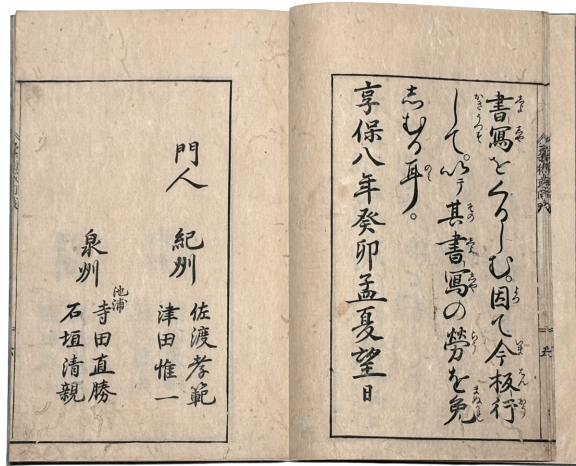 書寫をくるしむ。因て今板行
して。以テ其書寫の勞を免
しむる耳。
享保八年癸卯孟夏望日
門人
紀州
佐渡孝範
津田惟一
泉州
池浦
寺田直勝
石垣清親